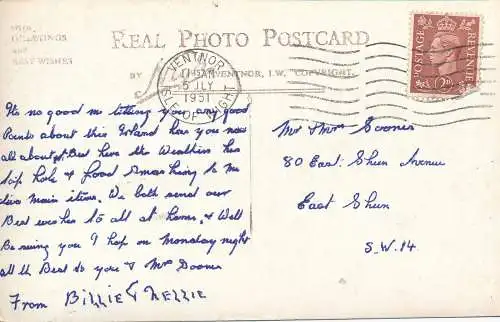 WITH
GREETINGS
and
BEST WISHES
REAL PHOTO POSTCARD
BY VENTNOR, I.W. COPYRIGHT.
VENTNOR
5 JLY
1951
ISLE OF WIGHT
POSTAGE REVENUE
2D
It's no good me telling you any good
Points about this Island has you now
all about it. But here the Weather his
tip hole & food Smashing to me
two main items. We both send our
Best wishes to all at home. & Well
Be seeing you I hop on Monday night
all the Best to you & Mrs Dooner
From BILLIE & NELLIE
Mr & Mrs Sooner
80 East Sheen Avenue
East Sheen
S.W. 14